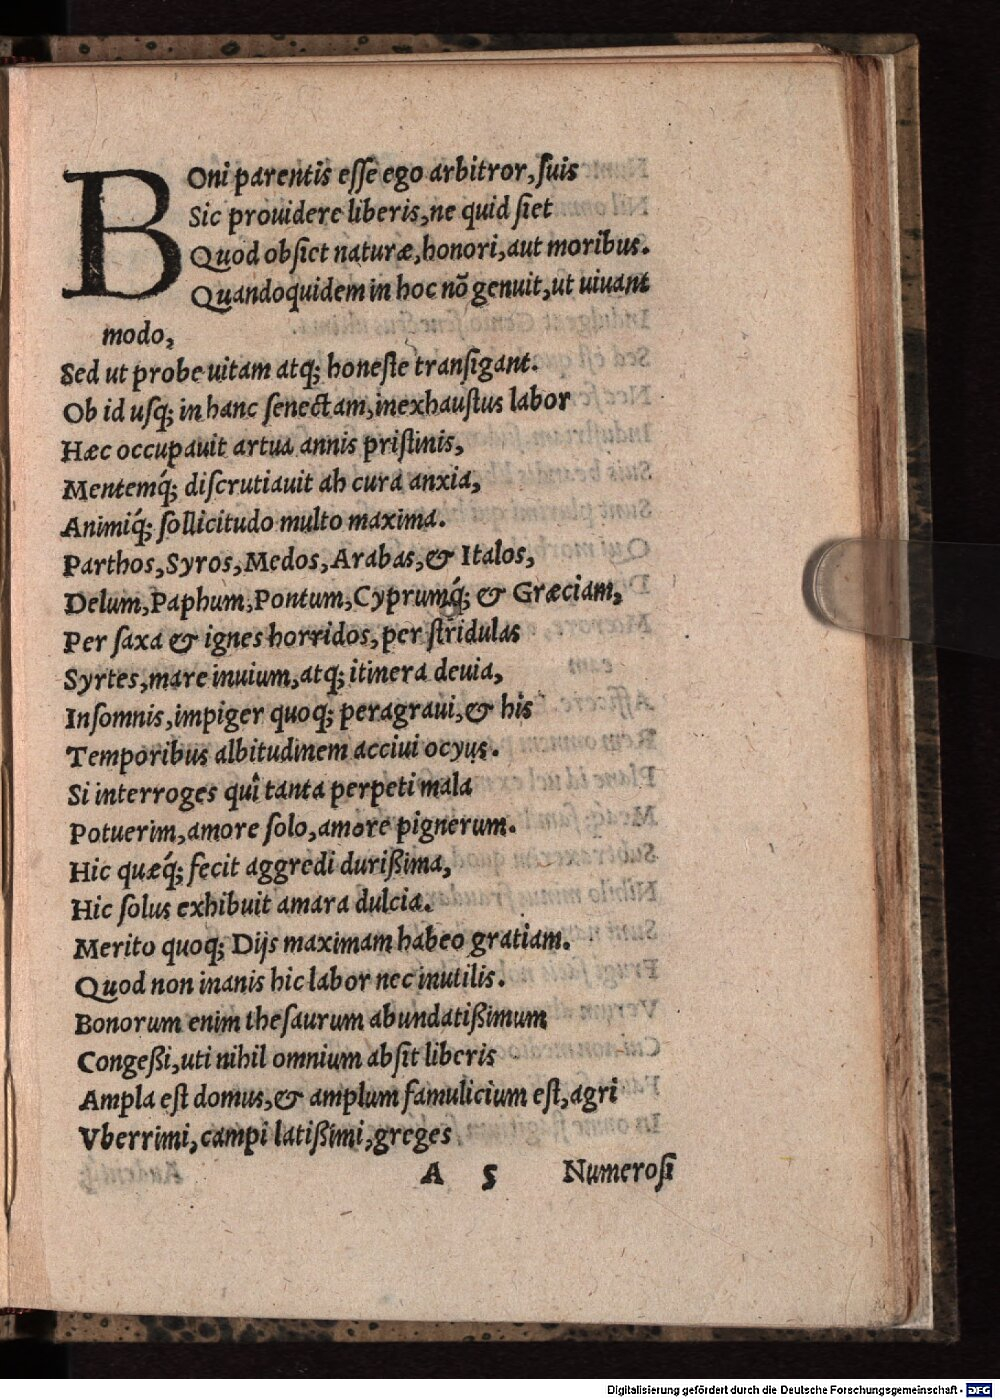 BOni parentis esse ego arbitror, suis
Sic prouidere liberis, ne quid siet
Quod obsiet naturæ, honori, aut moribus.
Quandoquidem in hoc nõ genuit, ut uiuant
modo,
Sed ut probe uitam atq; honeste transigant.
Ob id usq; in hanc senectam, inexhaustus labor
Hæc occupauit artua annis pristinis,
Mentemq́; discrutiauit ah cura anxia,
Animiq́; sollicitudo multo maxima.
Parthos, Syros, Medos, Arabas, & Italos,
Delum, Paphum, Pontum, Cyprumq́; & Græciam,
Per saxa & ignes horridos, per stridulas
Syrtes, mare inuium, atq; itinera deuia,
Insomnis, impiger quoq; peragraui, & his
Temporibus albitudinem acciui ocyus.
Si interroges quî tanta perpeti mala
Potuerim, amore solo, amore pignerum.
Hic quæq́; fecit aggredi durißima,
Hic solus exhibuit amara dulcia.
Merito quoq; Dijs maximam habeo gratiam.
Quod non inanis hic labor nec inutilis.
Bonorum enim thesaurum abundatißimum
Congeßi, uti nihil omnium absit liberis
Ampla est domus, & amplum famulicium est, agri
Vberrimi, campi latißimi, greges
A 5 Numerosi
Digitalisierung gefördert durch die Deutsche Forschungsgemeinschaft - DFG